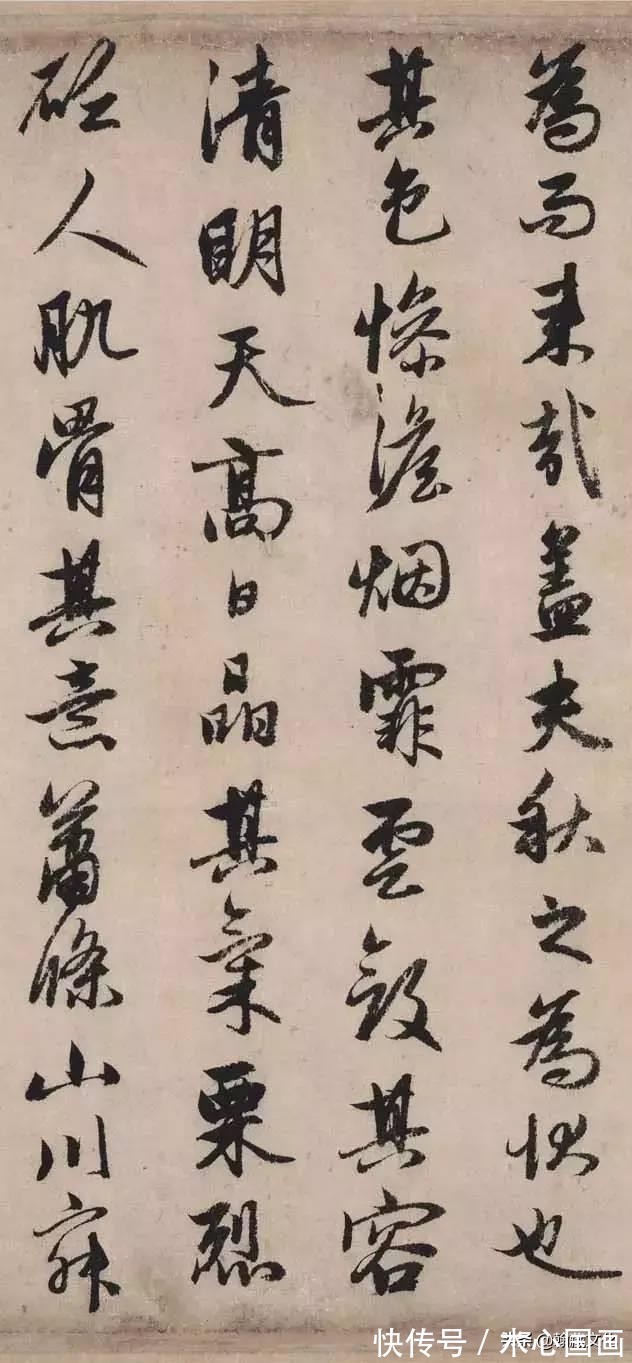 為而来哉盖夫秋之為状也
其色惨澹烟霏雲斂其容
清明天高日晶其氣栗烈
砭人肌骨其意蕭條山川寂
快传号 / 木心国画